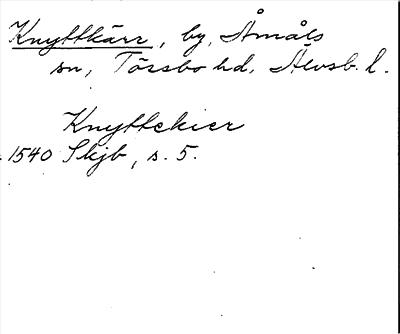 Knyttkärr, by, Åmåls
sn, Tössbo hd, Älvsb. l.
Knyttekier
1540 Skjb, s. 5.